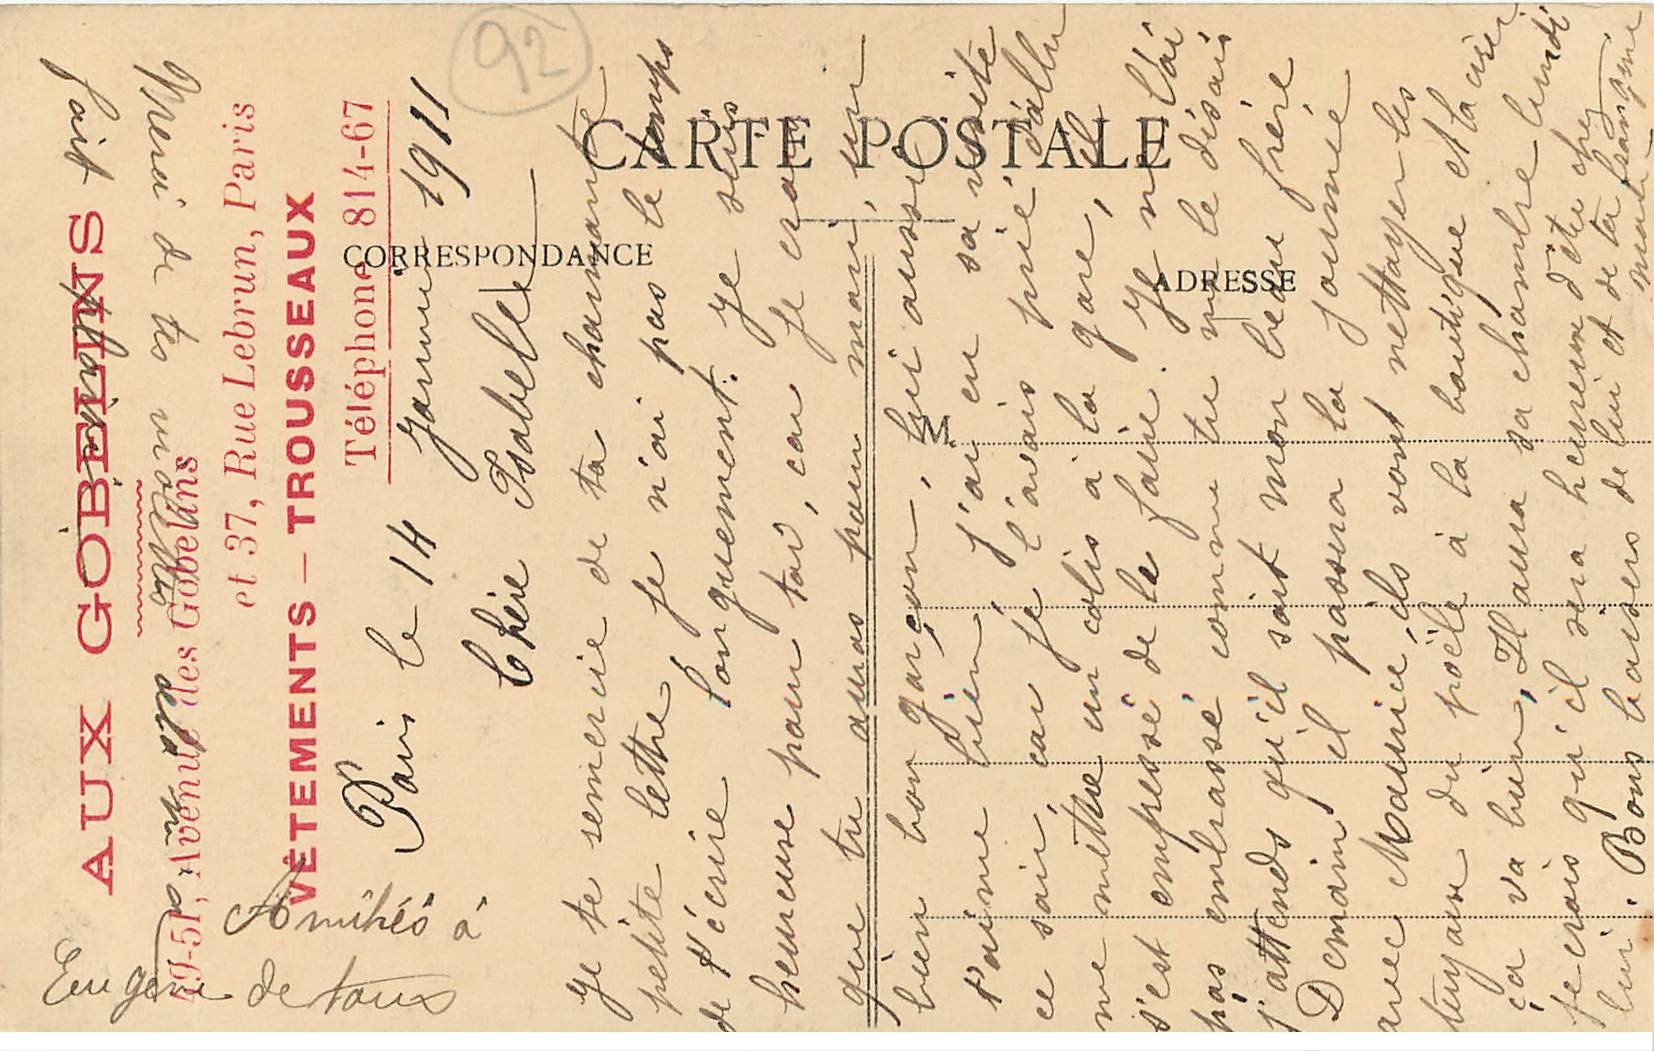 92
CARTE POSTALE
CORRESPONDANCE
ADRESSE
M
AUX GOBELINS
49-51, Avenue des Gobelins
et 37, Rue Lebrun, Paris
VÊTEMENTS – TROUSSEAUX
Téléphone 814-67
Paris le 14 Janvier 1911
Chère Isabelle
Je te remercie de ta charmante
petite lettre je n'ai pas le temps
de t'écrire longuement. Je suis
heureuse pour toi, car je crois
que tu auras pour mari, un
bien bon garçon, lui aussi
t'aime bien, j'ai eu sa visite
ce soir, car je l'avais prié d'aller
me mettre un colis à la gare, il
s'est empressé de le faire. Je ne l'ai
pas embrassé comme tu me le disais
j'attends qu'il soit mon beau frère
Demain il passera la journée
avec Maurice, ils vont nettoyer les
tuyaux du poële à la boutique et la cuisine
ça va bien, Il aura sa chambre lundi
je crois qu'il sera heureux d'être chez
lui. Bons baisers de lui et de ta frangine
Merci de tes violettes elles m'ont
fait plaisir
Amitiés à
Eugène de tous